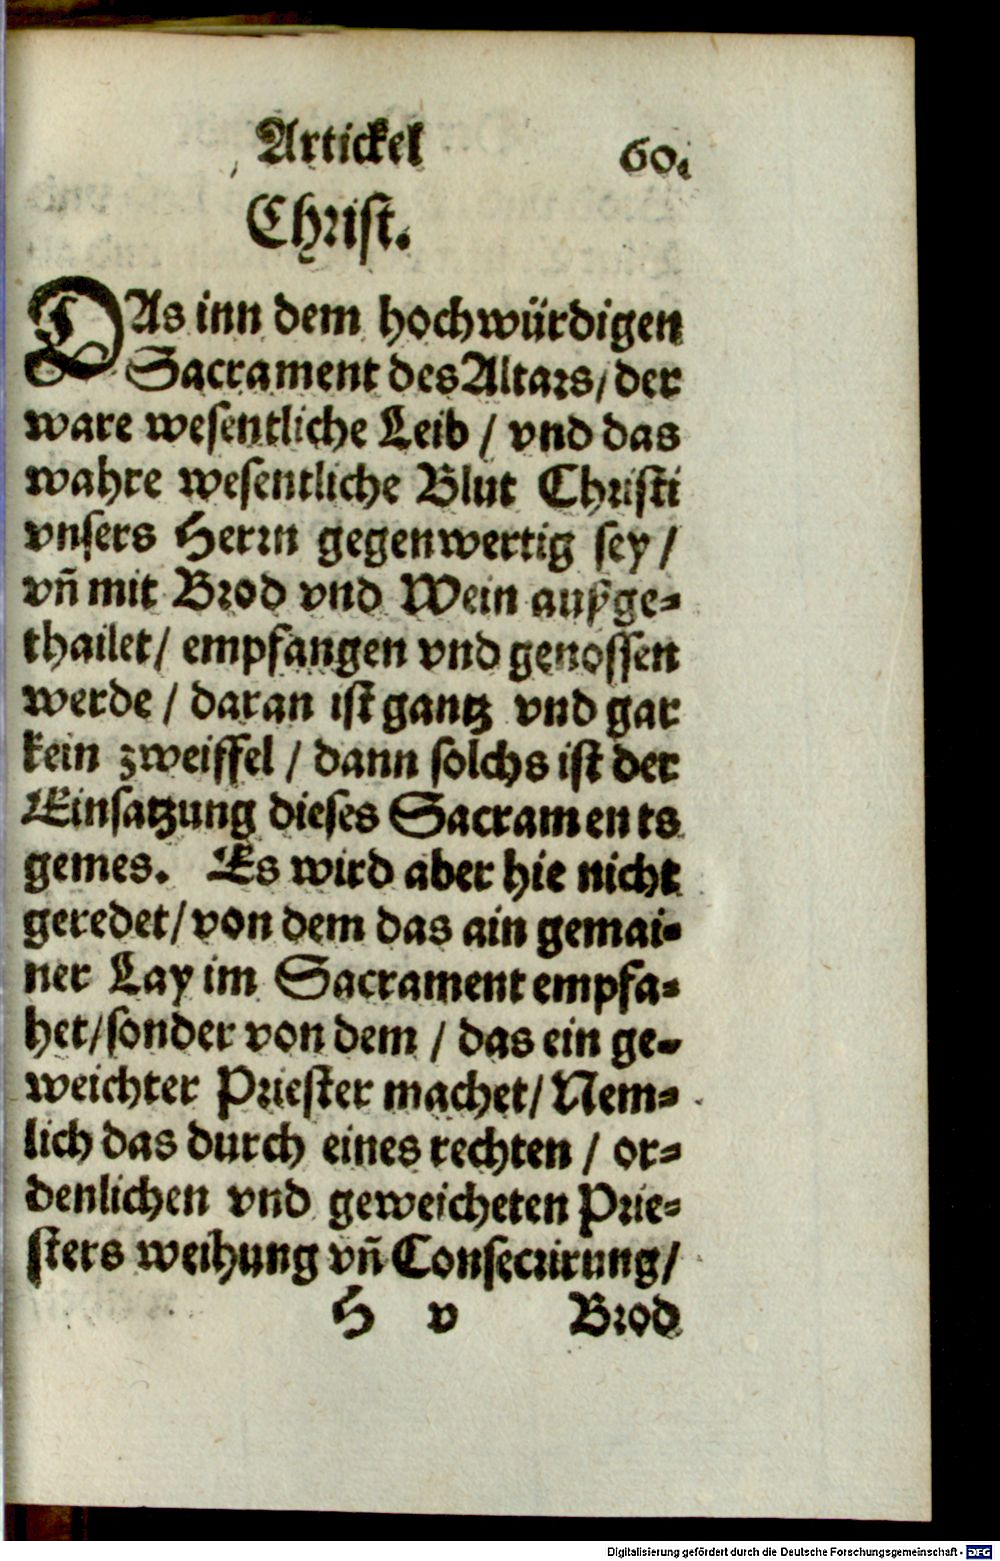 Artickel 60.
Christ.
DAs inn dem hochwürdigen
Sacrament des Altars / der
ware wesentliche Leib / vnd das
wahre wesentliche Blut Christi
vnsers Herrn gegenwertig sey /
vñ mit Brod vnd Wein außge-
thailet / empfangen vnd genossen
werde / daran ist gantz vnd gar
kein zweiffel / dann solchs ist der
Einsatzung dieses Sacraments
gemes. Es wird aber hie nicht
geredet / von dem das ain gemai-
ner Lay im Sacrament empfa-
het / sonder von dem / das ein ge-
weichter Priester machet / Nem-
lich das durch eines rechten / or-
denlichen vnd geweicheten Prie-
sters weihung vñ Consecrirung /
H v Brod
Digitalisierung gefördert durch die Deutsche Forschungsgemeinschaft - DFG